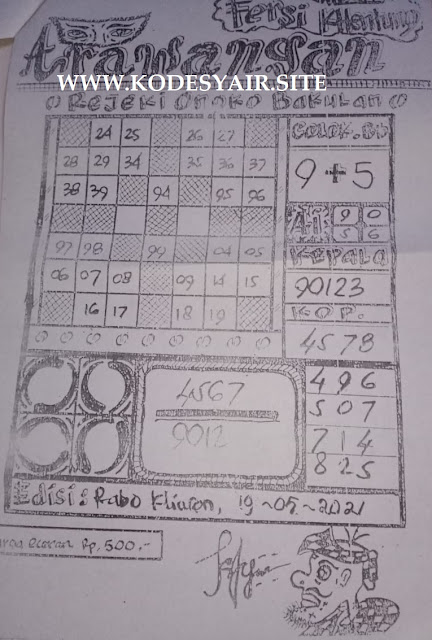 Fersi
Trawangan
WWW.KODESYAIR.SITE
O REJEKI ONOKO BAKULAN O
24 25 26 27
28 29 34 35 36 37
38 39 94 95 96
97 98 99 04 05
06 07 08 09 14 15
16 17 18 19
COLOK. BB
9 + 5
AI
9 0
5 6
KEPALA
90123
KOP.
4578
4567
9012
496
507
714
825
Edisi : Rabo Kliwon, 19 - 05 - 2021
eceran Rp, 500.-